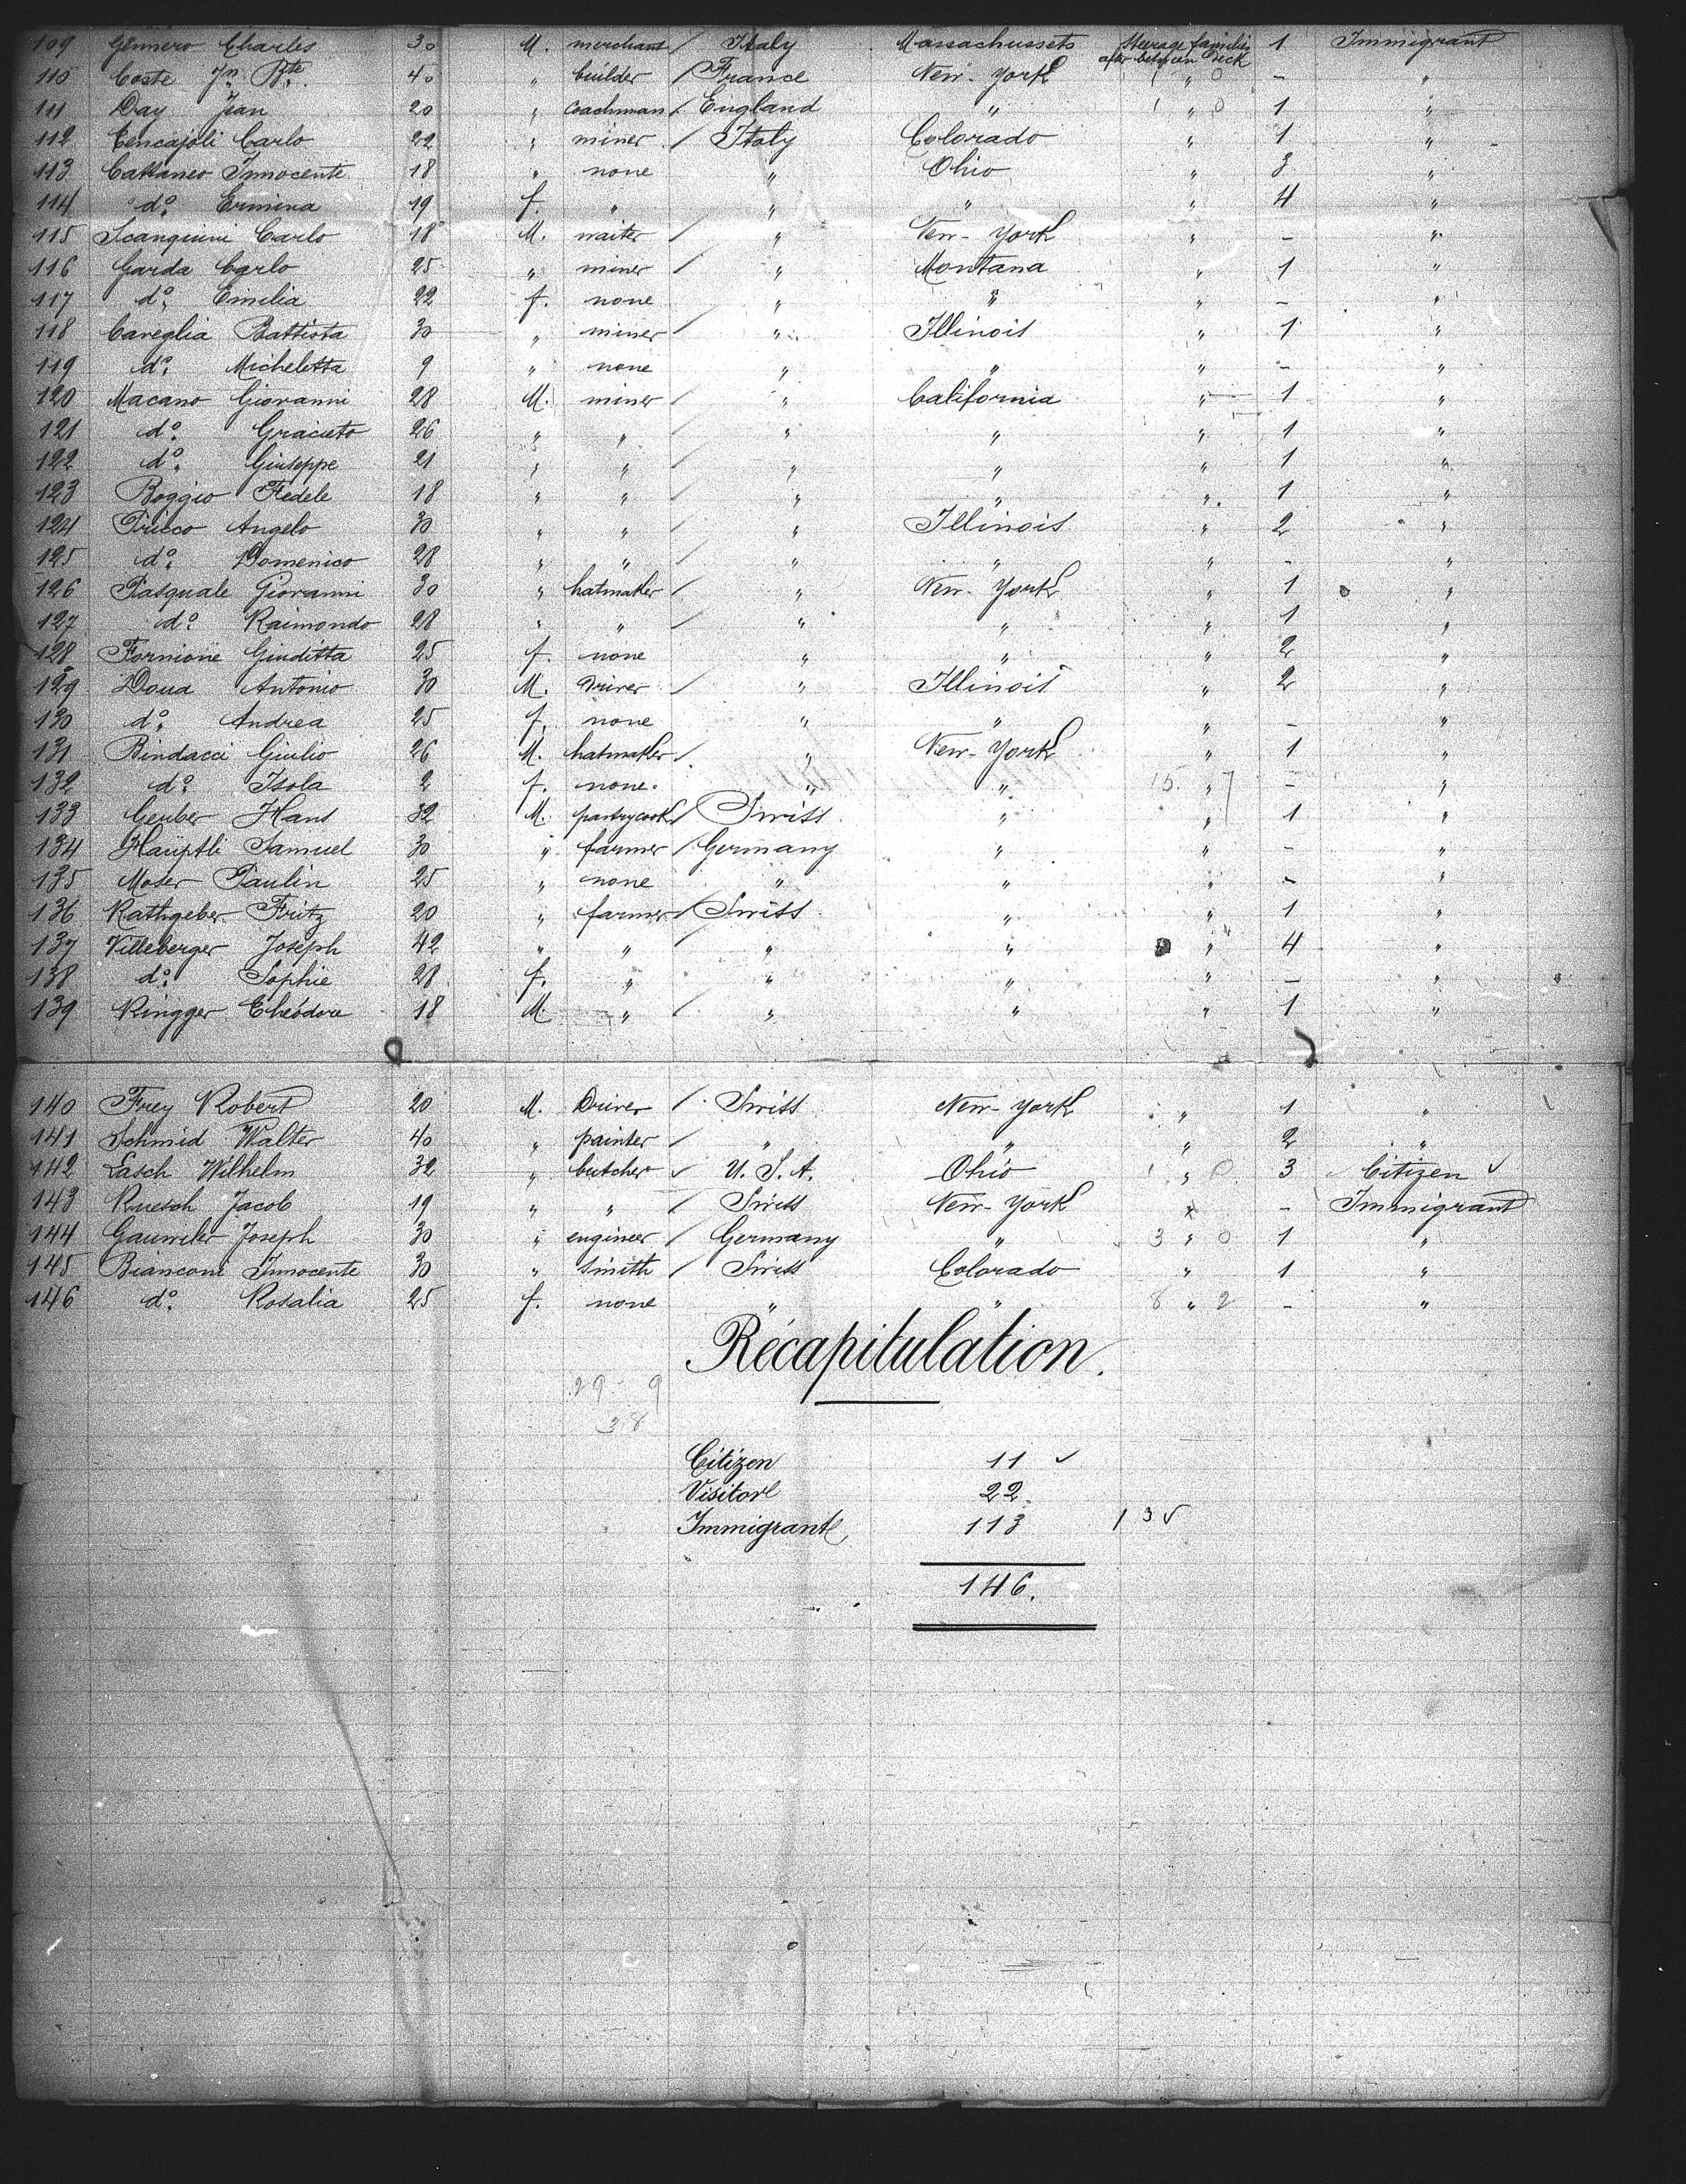 109 Gennero Charles 30 M. merchant / Italy Massachussets Steerage families after between deck 1 Immigrant
110 Coste Jn Bte. 40 " builder / France New-York 1 " 0 - "
111 Day Jean 20 " coachman / England " 1 " 0 1 "
112 Cencajoli Carlo 22 " miner / Italy Colorado " 1 "
113 Cattaneo Innocente 18 " none " Ohio " 3 "
114 do. Ermina 19 f. " " " " 4 "
115 Scanquini Carlo 18 M. waiter / " New-York " - "
116 Garda Carlo 25 " miner / " Montana " 1 "
117 do. Emilia 22 f. none " " " - "
118 Careglia Battista 30 " miner / " Illinois " 1 "
119 do. Micheletta 9 " none " " " - "
120 Macano Giovanni 28 M. miner / " California " 1 "
121 do. 26 " " / " " " 1 "
122 do. Giuseppe 21 " " / " " " 1 "
123 Boggio Fedele 18 " " / " " " 1 "
124 Angelo 30 " " / " Illinois " 2 "
125 do. Domenico 28 " " / " " " - "
126 Pasquale Giovanni 30 " hatmaker / " New-York " 1 "
127 do. Raimondo 28 " " / " " " 1 "
128 Fornione Giuditta 25 f. none " " " 2 "
129 Doua Antonio 30 M. Driver / " Illinois " 2 "
130 do. Andrea 25 f. none " " " - "
131 Bindacci Giulio 26 M. hatmaker / " New-York " 1 "
132 do. Isola 2 f. none. " " 15. " 7 - "
133 Gerber Hans 32 M. pastrycook / Swiss " " 1 "
134 Hauptli Samuel 30 " farmer / Germany " " - "
135 Moser Paulin 25 " none " " " - "
136 Rathgeber Fritz 20 " farmer / Swiss " " 1 "
137 Villeberger Joseph 42 " " / " " " 4 "
138 do. Sophie 28 f. " " " " - "
139 Ringger Théodore 18 M. " / " " " 1 "
140 Frey Robert 20 M. Driver / Swiss New-York " 1 "
141 Schmid Walter 40 " painter / " " " 2 "
142 Lasch Wilhelm 32 " butcher ✓ U.S.A. Ohio 1 " 0 3 Citizen ✓
143 Ruesch Jacob 19 " " / Swiss New-York " - Immigrant
144 Joseph 30 " engineer / Germany " 3 " 0 1 "
145 Bianconi Innocente 30 " smith / Swiss Colorado " 1 "
146 do. Rosalia 25 f. none " " 8 " 2 - "
Récapitulation.
29 - 9
38
Citizen 11 ✓
Visitors 22.
Immigrants 113 135
146.